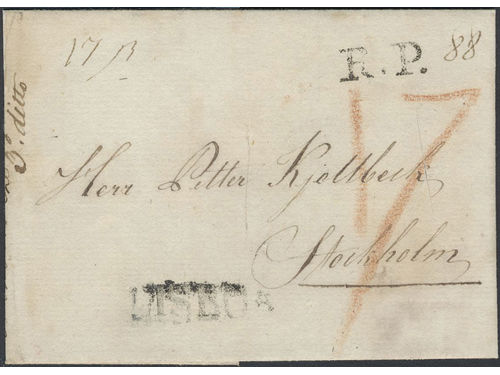 17 β
R.P.
88
17
3º ditto
Herr Petter Kjellbeck
Stockholm
LISBOA